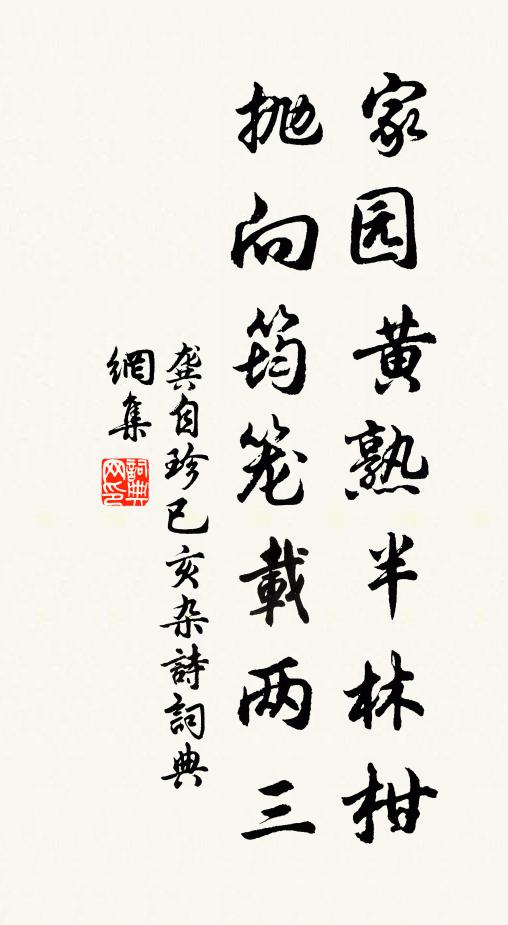 家园黄熟半林柑
抛向筠笼載两三
龚自珍已亥杂詩詞典
網集
詞典
网印